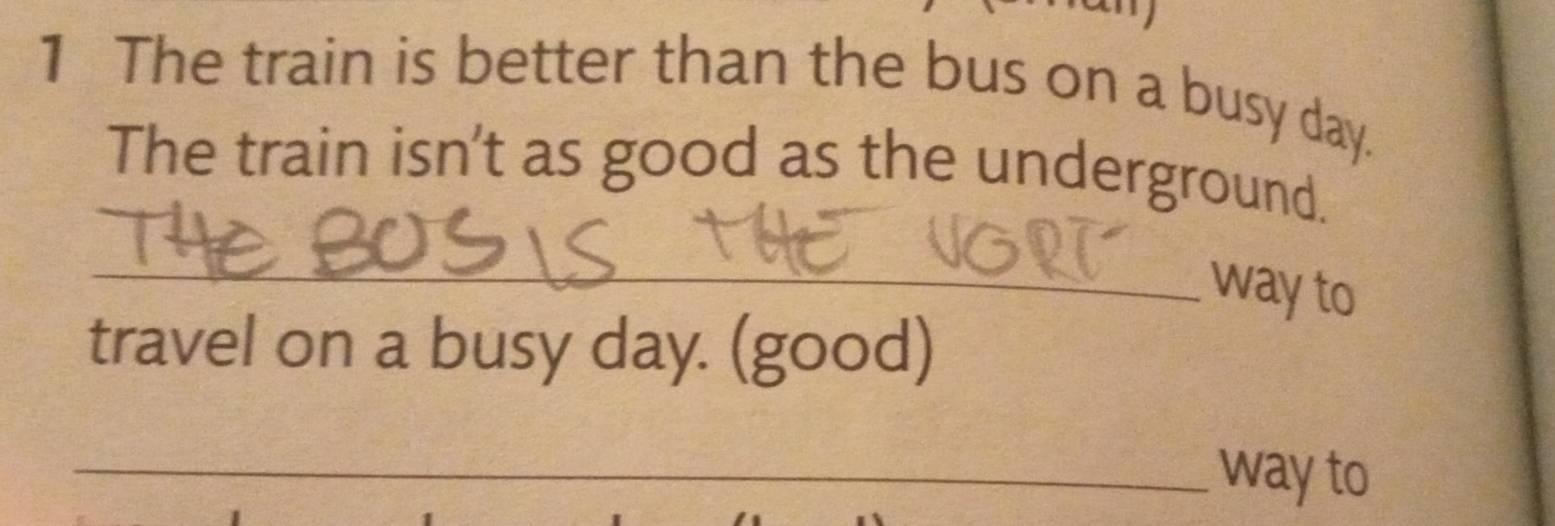 1 The train is better than the bus on a busy day.
The train isn't as good as the underground.
THE BUS IS THE VORT way to
travel on a busy day. (good)
way to